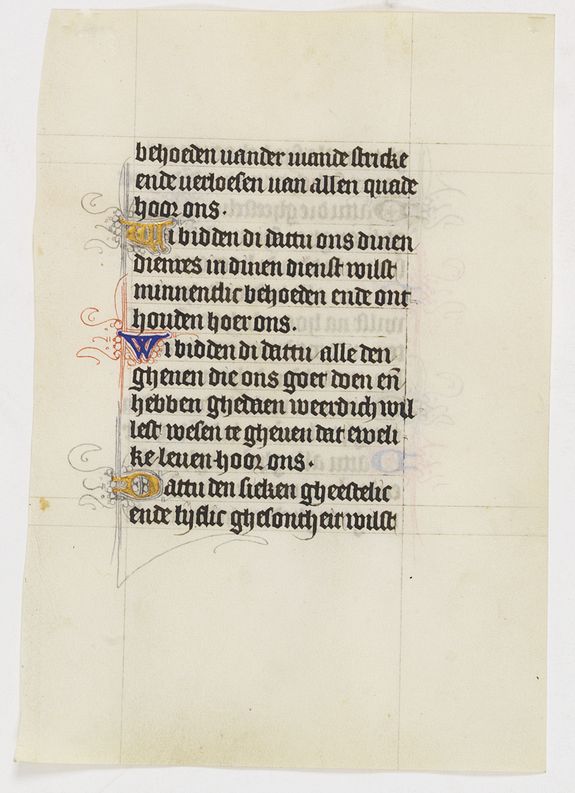 behoeden vander viande stricke
ende verloesen van allen quade
hoor ons.
Wi bidden di dattu ons dinen
dienres in dinen dienst wilst
minnentlic behoeden ende ont
houden hoer ons.
Wi bidden di dattu alle den
ghenen die ons goet doen en̄
hebben ghedaen weerdich wil
lest wesen te gheven dat eweli
ke leven hoor ons.
Dattu den sieken gheestelic
ende lijflic ghesontheit wilst